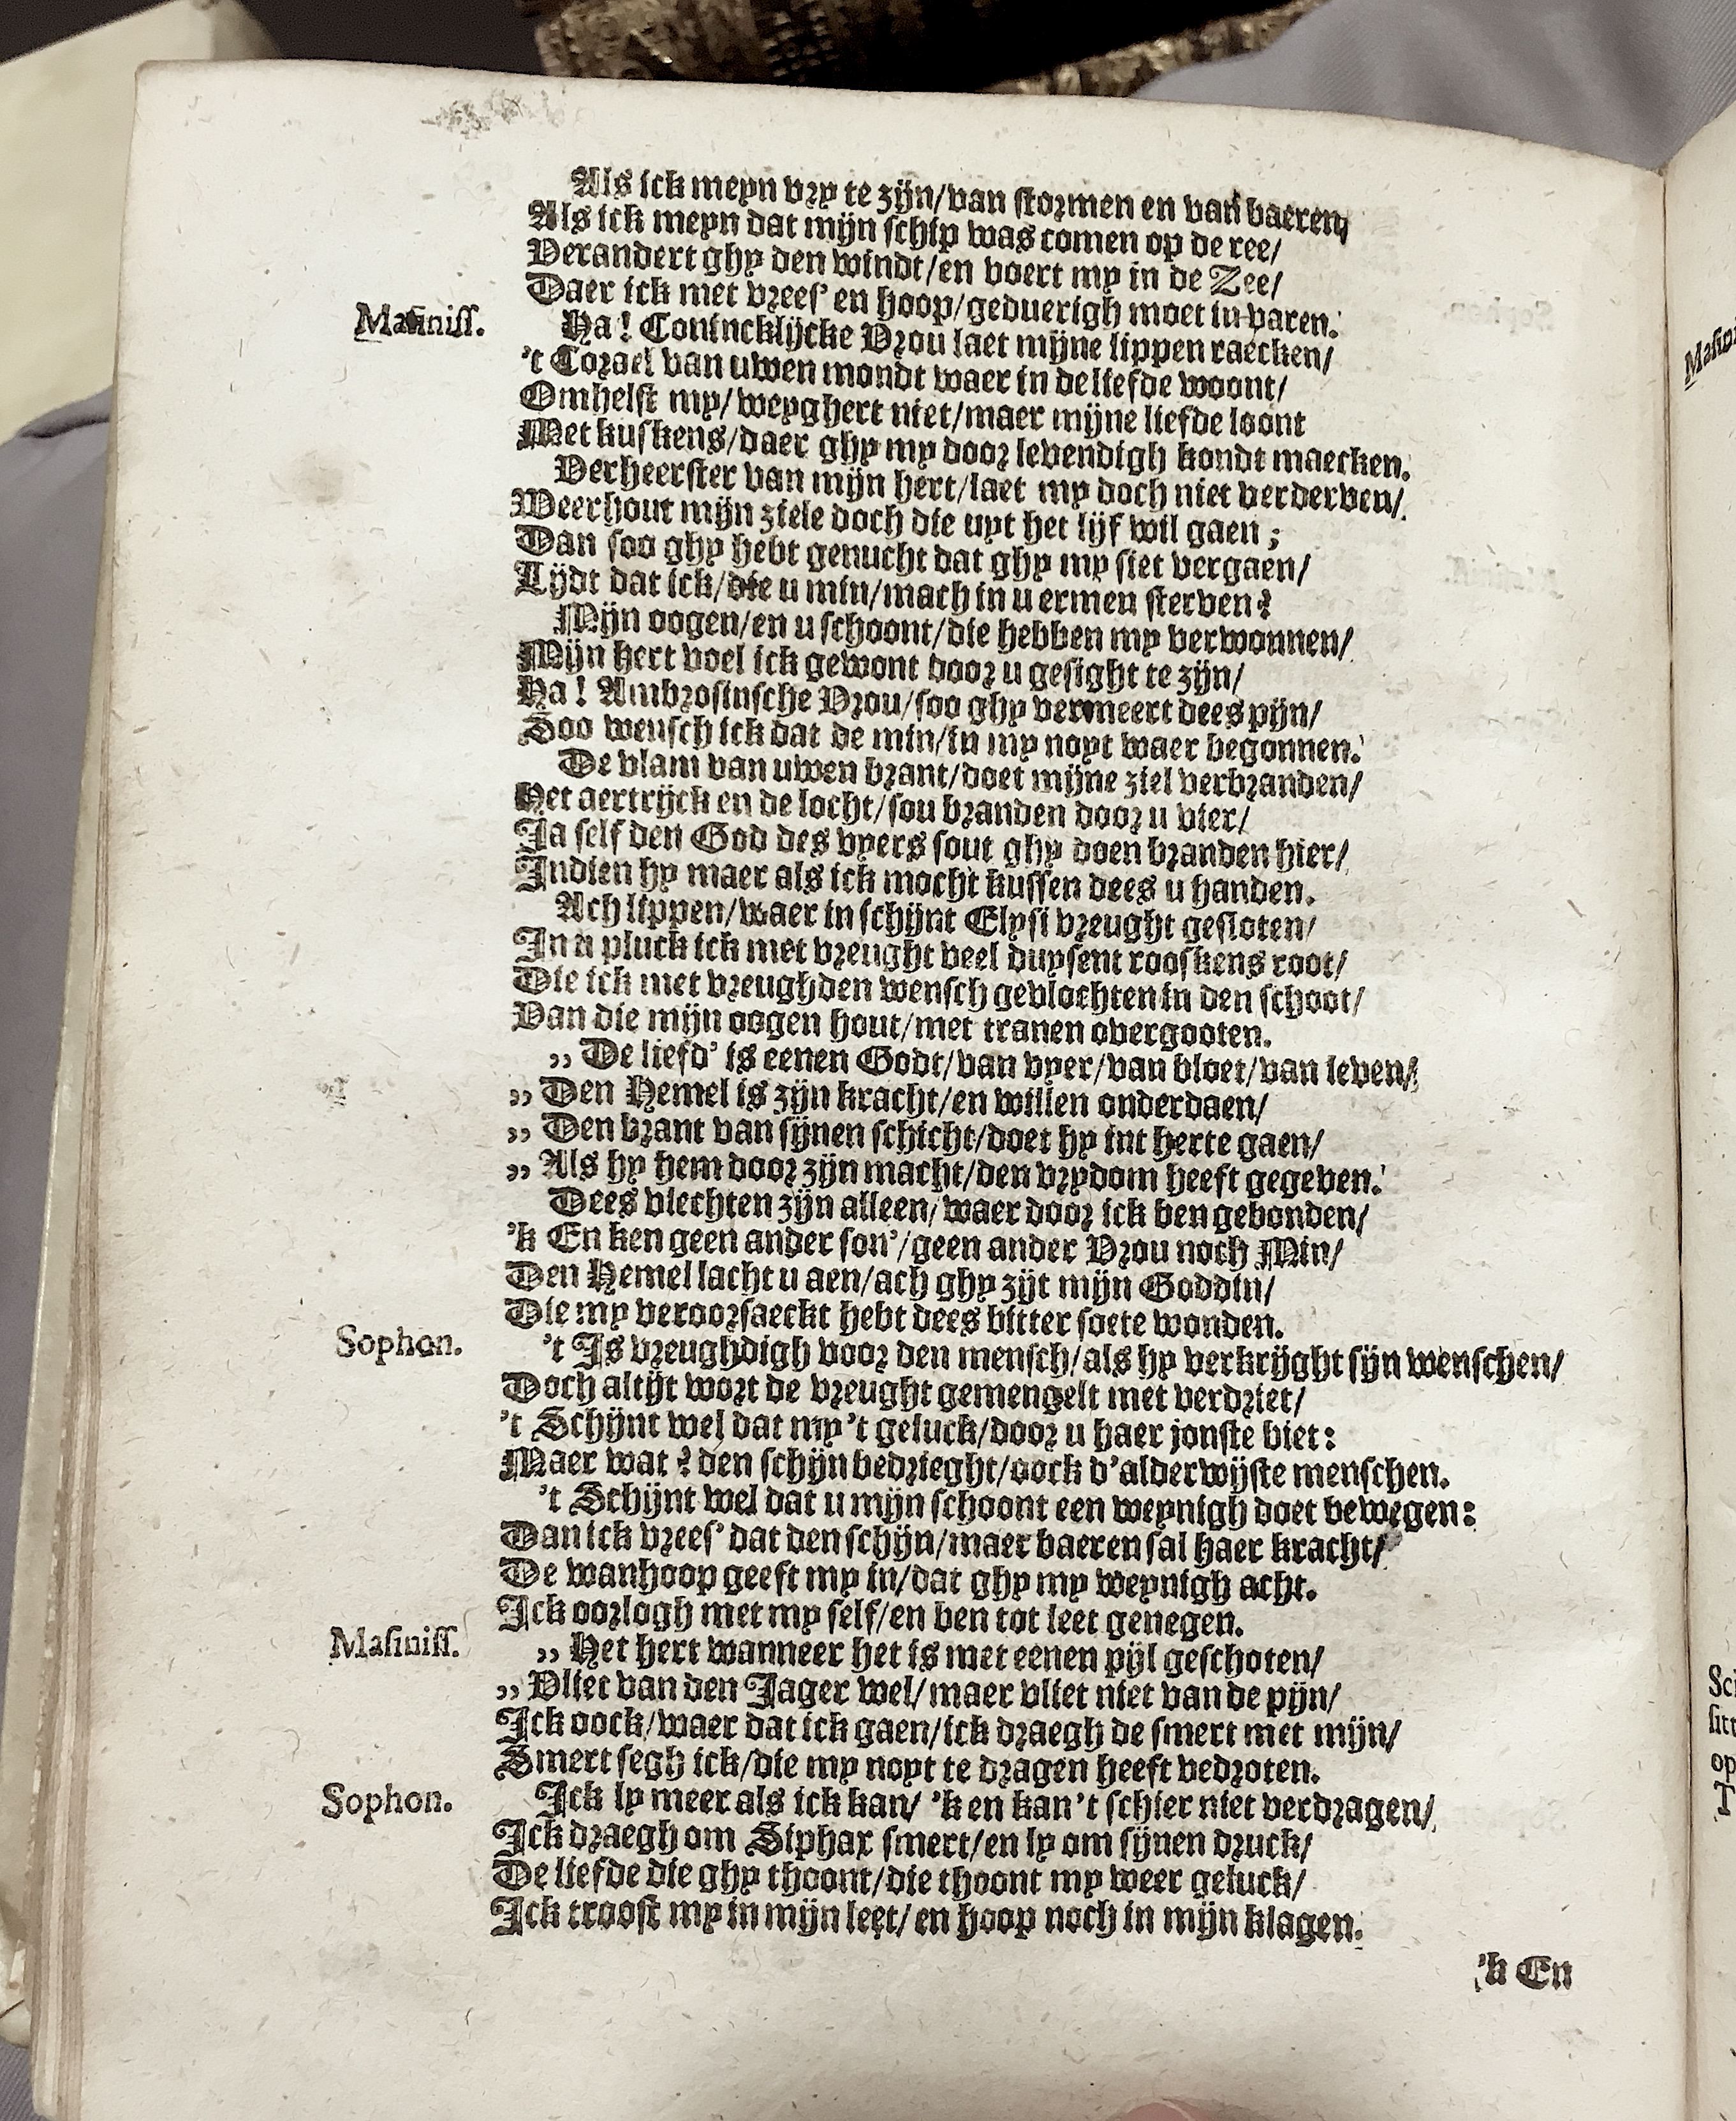 Als ick meyn vry te zijn/van stormen en van baeren/
Als ick meyn dat mijn schip was comen op de ree/
Verandert ghy den windt/en voert my in de Zee/
Daer ick met vrees' en hoop/geduerigh moet in varen.
Masiniss. Ha! Conincklijcke Vrou laet mijne lippen raecken/
't Corael van uwen mondt waer in de liefde woont/
Omhelst my/weyghert niet/maer mijne liefde loont
Met kuskens/daer ghy my door levendigh kondt maecken.
Verheerster van mijn hert/laet my doch niet verderven/
Weerhout mijn ziele doch die uyt het lijf wil gaen;
Dan soo ghy hebt genucht dat ghy my siet vergaen/
Lijdt dat ick/die u min/mach in u ermen sterven?
Mijn oogen/en u schoont/die hebben my verwonnen/
Mijn hert voel ick gewont door u gesight te zijn/
Ha! Ambrosinsche Vrou/soo ghy vermeert dees pijn/
Soo wensch ick dat de min/in my noyt waer begonnen.
De vlam van uwen brant/doet mijne ziel verbranden/
Het aertrijck en de locht/sou branden door u vier/
Ja self den God des vyers sout ghy doen branden hier/
Indien hy maer als ick mocht kussen dees u handen.
Ach lippen/waer in schijnt Elysi vreught gesloten/
In u pluck ick met vreught veel duysent rooskens root/
Die ick met vreughden wensch gevlochten in den schoot/
Van die mijn oogen hout/met tranen overgooten.
„ De liefd' is eenen Godt/van vyer/van bloet/van leven/
„ Den Hemel is zijn kracht/en willen onderdaen/
„ Den brant van sijnen schicht/doet hy int herte gaen/
„ Als hy hem door zijn macht/den vrydom heeft gegeven.
Dees vlechten zijn alleen/waer door ick ben gebonden/
'k En ken geen ander son'/geen ander Vrou noch Min/
Den Hemel lacht u aen/ach ghy zijt mijn Goddin/
Die my veroorsaeckt hebt dees bitter soete wonden.
Sophon. 't Is vreughdigh voor den mensch/als hy verkrijght sijn wenschen/
Doch altijt wort de vreught gemengelt met verdriet/
't Schijnt wel dat my 't geluck/door u haer jonste biet:
Maer wat? den schijn bedrieght/oock d'alderwijste menschen.
't Schijnt wel dat u mijn schoont een weynigh doet bewegen:
Dan ick vrees' dat den schijn/maer baeren sal haer kracht/
De wanhoop geeft my in/dat ghy my weynigh acht.
Ick oorlogh met my self/en ben tot leet genegen.
Masiniss. „ Het hert wanneer het is met eenen pijl geschoten/
„ Vliet van den Jager wel/maer vliet niet van de pijn/
Ick oock/waer dat ick gaen/ick draegh de smert met mijn/
Smert segh ick/die my noyt te dragen heeft vedroten.
Sophon. Ick ly meer als ick kan/ 'k en kan 't schier niet verdragen/
Ick draegh om Siphax smert/en ly om sijnen druck/
De liefde die ghy thoont/die thoont my weer geluck/
Ick troost my in mijn leet/en hoop noch in mijn klagen.
'k En